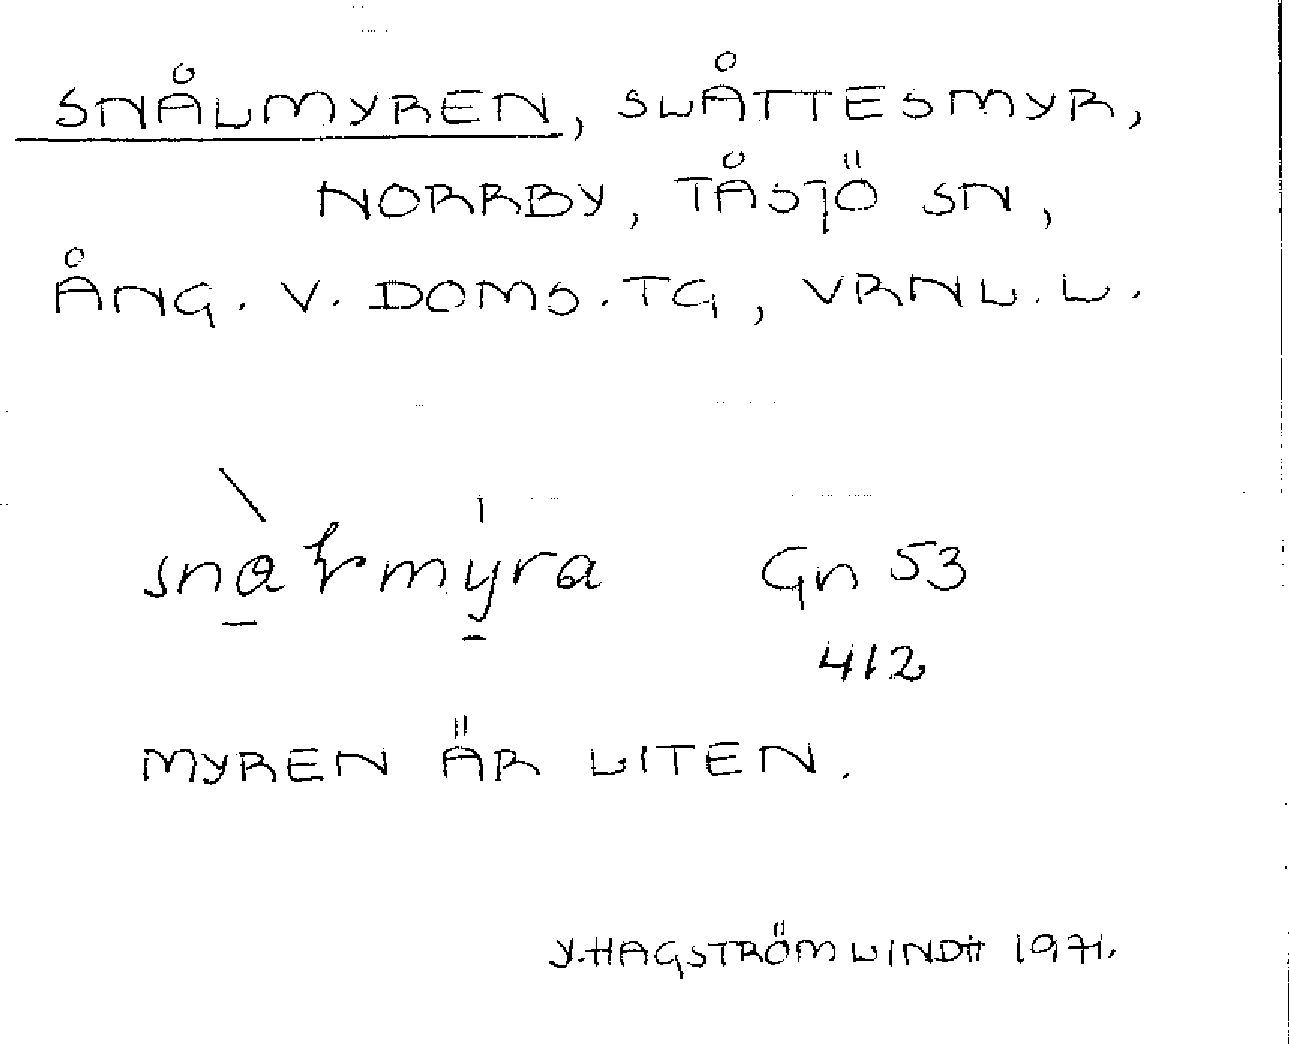 SNÅLMYREN, SLÅTTESMYR,
NORRBY, TÅSJÖ SN,
ÅNG. V. DOMS. TG, VRNL. L.
Gn 53
412
MYREN ÄR LITEN.
Y. HAGSTRÖM LINDH 1971.